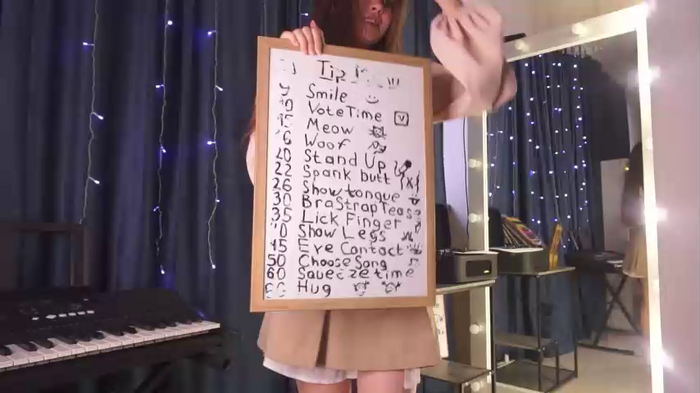 Tip
Smile
Vote Time V
15 Meow
Woof
20 Stand Up
22 Spank butt
26 Show tongue
30 Bra Strap Teas
35 Lick Finger
Show Legs
45 Eye Contact
50 Choose Song
60 Squeeze time
Hug